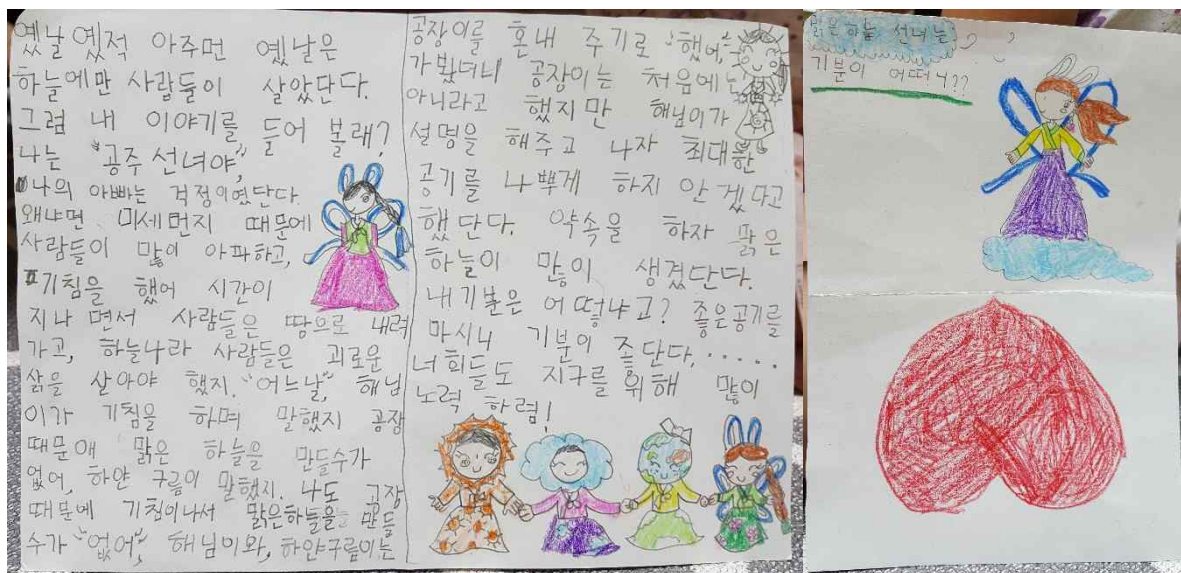 옜날옜적 아주먼 옜날은
하늘에만 사람들이 살았단다.
그럼 내 이야기를 들어 볼래?
나는 "공주선녀야,"
나의 아빠는 걱정이였단다.
왜냐면 미세먼지 때문에
사람들이 많이 아파하고,
기침을 했어 시간이
지나면서 사람들은 땅으로 내려
가고, 하늘나라 사람들은 괴로운
삶을 산아야 했지. "어느날," 해님
이가 기침을 하며 말했지 공장
때문애 맑은 하늘을 만들수가
없어, 하얀 구름이 말했지. 나도 공장
때문에 기침이나서 맑은하늘을 만들
수가 "없어", 해님이와, 하얀구름이는
공장이를 혼내 주기로 "했어,"
가봤더니 공장이는 처음에는
아니라고 했지만 해님이가
설명을 해주고 나자 최대한
공기를 나쁘게 하지 안겠다고
했단다. 약속을 하자 맑은
하늘이 많이 생겼단다.
내기분은 어떻냐고? 좋은공기를
마시니 기분이 좋단다,.....
너희들도 지구를 위해 많이
노력 하렴!
맑은하늘 선녀는
기분이 어떠니??